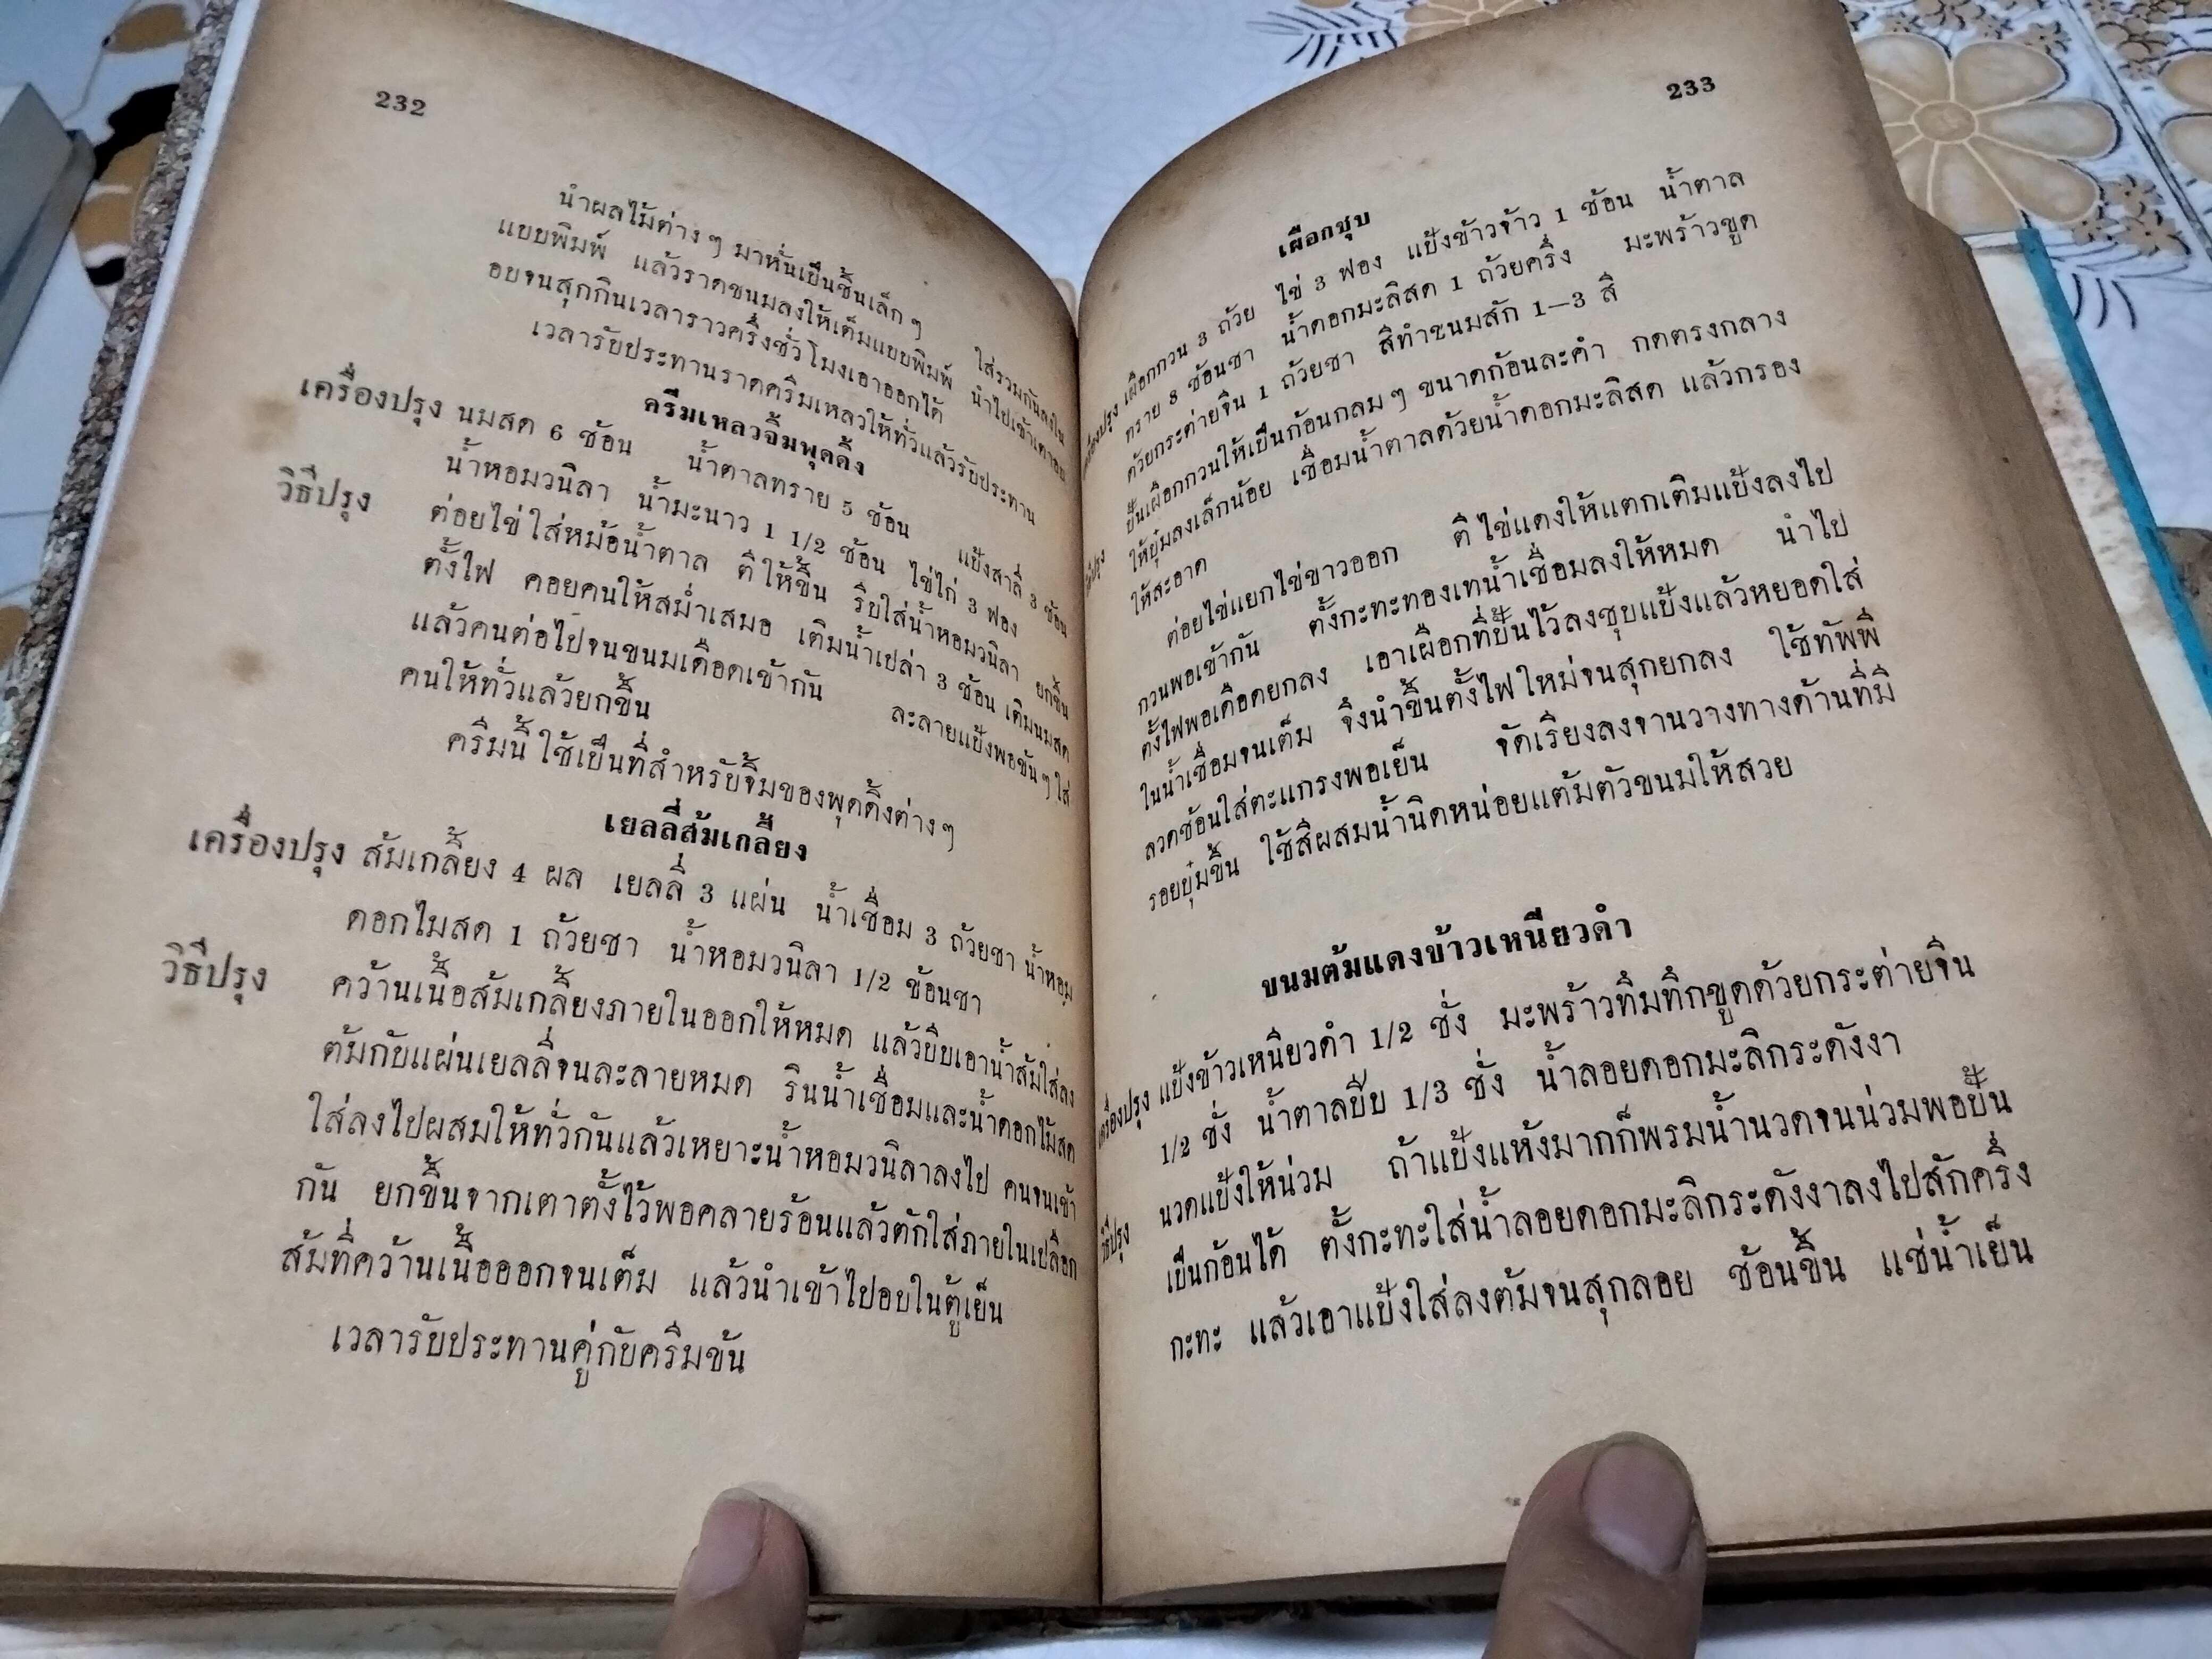 232
นำผลไม้ต่าง ๆ มาหั่นเป็นชิ้นเล็ก ๆ ใส่รวมกันลงใน
แบบพิมพ์ แล้วราดขนมลงให้เต็มแบบพิมพ์ นำไปเข้าเตาอบ
อบจนสุกกินเวลาราวครึ่งชั่วโมงเอาออกได้
เวลารับประทานราดครีมเหลวให้ทั่วแล้วรับประทาน
ครีมเหลวจิ้มพุดดิ้ง
เครื่องปรุง นมสด 6 ช้อน น้ำตาลทราย 5 ช้อน แป้งสาลี 3 ช้อน
น้ำหอมวนิลา น้ำมะนาว 1 1/2 ช้อน ไข่ไก่ 3 ฟอง
วิธีปรุง ต่อยไข่ใส่หม้อน้ำตาล ตีให้ขึ้น รีบใส่น้ำหอมวนิลา ยกขึ้น
ตั้งไฟ คอยคนให้สม่ำเสมอ เติมน้ำเปล่า 3 ช้อน เติมนมสด
แล้วคนต่อไปจนขนมเดือดเข้ากัน ละลายแป้งพอข้น ๆ ใส่
คนให้ทั่วแล้วยกขึ้น
ครีมนี้ใช้เป็นที่สำหรับจิ้มของพุดดิ้งต่าง ๆ
เยลลี่ส้มเกลี้ยง
เครื่องปรุง ส้มเกลี้ยง 4 ผล เยลลี่ 3 แผ่น น้ำเชื่อม 3 ถ้วยชา น้ำหอม
ดอกไมสด 1 ถ้วยชา น้ำหอมวนิลา 1/2 ช้อนชา
วิธีปรุง คว้านเนื้อส้มเกลี้ยงภายในออกให้หมด แล้วบีบเอาน้ำส้มใส่ลง
ต้มกับแผ่นเยลลี่จนละลายหมด รินน้ำเชื่อมและน้ำดอกไม้สด
ใส่ลงไปผสมให้ทั่วกันแล้วเหยาะน้ำหอมวนิลาลงไป คนจนเข้า
กัน ยกขึ้นจากเตาตั้งไว้พอคลายร้อนแล้วตักใส่ภายในเปลือก
ส้มที่คว้านเนื้อออกจนเต็ม แล้วนำเข้าไปอบในตู้เย็น
เวลารับประทานคู่กับครีมข้น
233
เผือกชุบ
เครื่องปรุง เผือกกวน 3 ถ้วย ไข่ 3 ฟอง แป้งข้าวจ้าว 1 ช้อน น้ำตาล
ทราย 8 ช้อนชา น้ำดอกมะลิสด 1 ถ้วยครึ่ง มะพร้าวขูด
ด้วยกระต่ายจีน 1 ถ้วยชา สีทำขนมสัก 1—3 สี
วิธีปรุง ปั้นเผือกกวนให้เป็นก้อนกลม ๆ ขนาดก้อนละคำ กดตรงกลาง
ให้ยุ๋มลงเล็กน้อย เชื่อมน้ำตาลด้วยน้ำดอกมะลิสด แล้วกรอง
ให้สะอาด
ต่อยไข่แยกไข่ขาวออก ตีไข่แดงให้แตกเติมแป้งลงไป
กวนพอเข้ากัน ตั้งกะทะทองเทน้ำเชื่อมลงให้หมด นำไป
ตั้งไฟพอเดือดยกลง เอาเผือกที่ปั้นไว้ลงชุบแป้งแล้วหยอดใส่
ในน้ำเชื่อมจนเต็ม จึงนำขึ้นตั้งไฟใหม่จนสุกยกลง ใช้ทัพพี
ลวดช้อนใส่ตะแกรงพอเย็น จัดเรียงลงจานวางทางด้านที่มี
รอยยุ๋มขึ้น ใช้สีผสมน้ำนิดหน่อยแต้มตัวขนมให้สวย
ขนมต้มแดงข้าวเหนียวดำ
เครื่องปรุง แป้งข้าวเหนียวดำ 1/2 ชั่ง มะพร้าวทึมทึกขูดด้วยกระต่ายจีน
1/2 ชั่ง น้ำตาลปีบ 1/3 ชั่ง น้ำลอยดอกมะลิกระดังงา
วิธีปรุง นวดแป้งให้น่วม ถ้าแป้งแห้งมากก็พรมน้ำนวดจนน่วมพอปั้น
เป็นก้อนได้ ตั้งกะทะใส่น้ำลอยดอกมะลิกระดังงาลงไปสักครึ่ง
กะทะ แล้วเอาแป้งใส่ลงต้มจนสุกลอย ช้อนขึ้น แช่น้ำเย็น